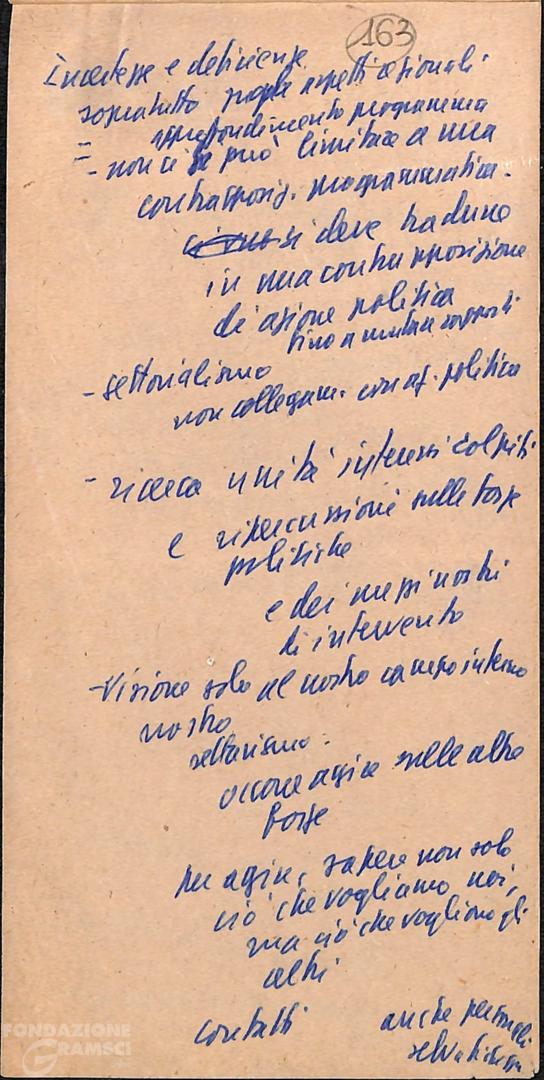 163
Incertezze e deficienze
sopratutto negli aspetti azionali
approfondimento programma
= - non ci si può limitare a una
contrapposiz. programmatica.
si deve tradurre
in una contrapposizione
di azione politica
fino a mutare rapporti
- settorialismo
non collegam. con az. politica
- ricerca unità interessi colpiti
e ripercussioni sulle forze
politiche
e dei mezzi nostri
di intervento
- Visione solo al nostro campo interno
nostro
settarismo.
occorre agire sulle altre
forze
per agire, sapere non solo
ciò che vogliamo noi,
ma ciò che vogliono gli
altri
contatti anche personali
FONDAZIONE
GRAMSCI